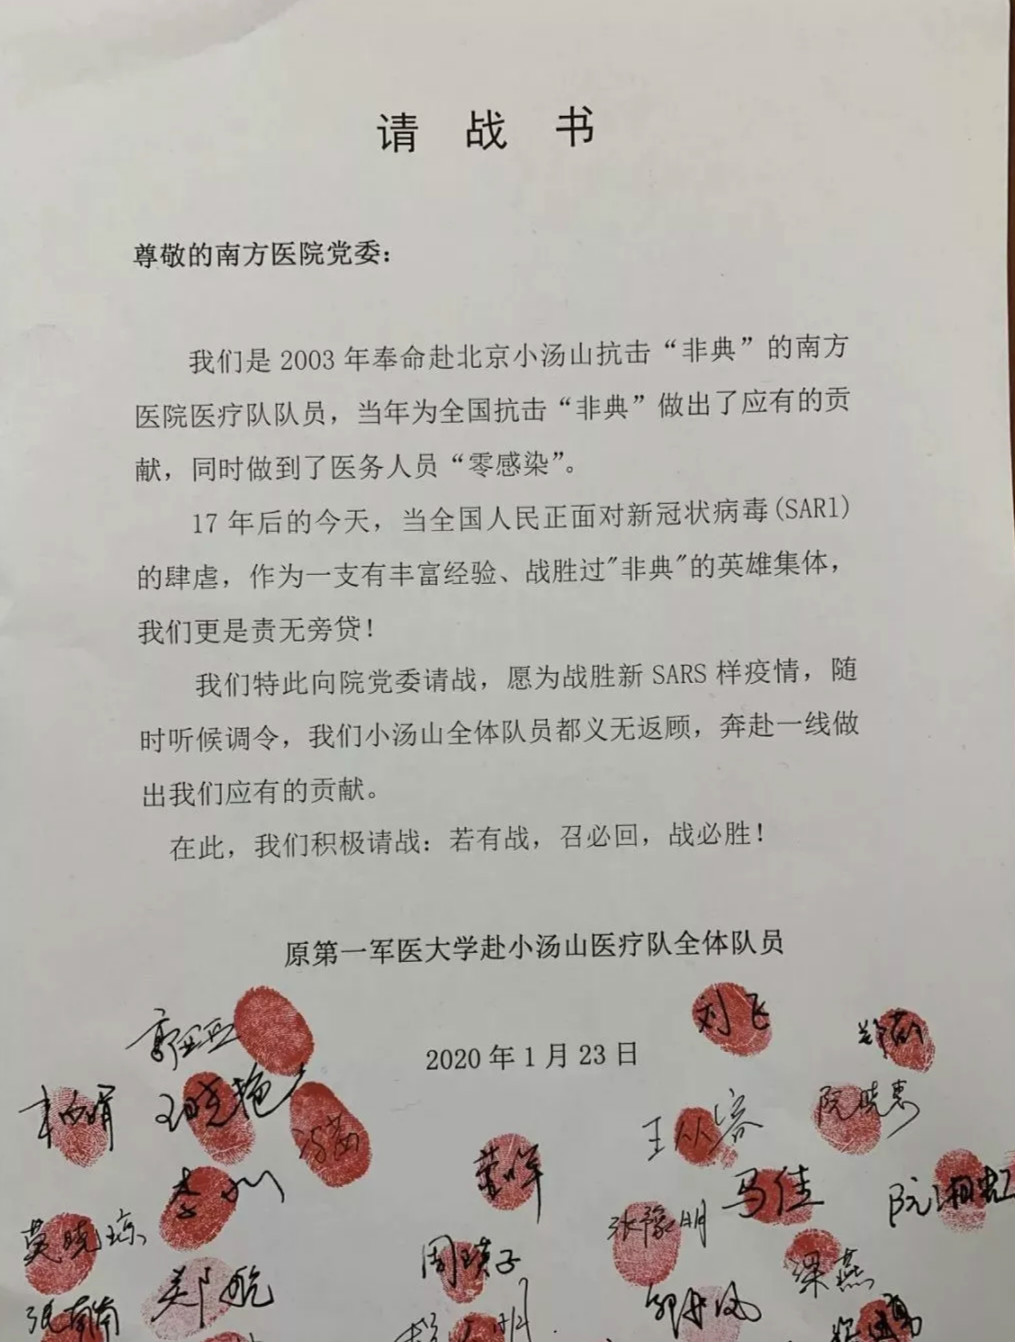 请战书
尊敬的南方医院党委：
我们是2003年奉命赴北京小汤山抗击“非典”的南方
医院医疗队队员，当年为全国抗击“非典”做出了应有的贡
献，同时做到了医务人员“零感染”。
17年后的今天，当全国人民正面对新冠状病毒(SARl)
的肆虐，作为一支有丰富经验、战胜过"非典"的英雄集体，
我们更是责无旁贷！
我们特此向院党委请战，愿为战胜新SARS样疫情，随
时听候调令，我们小汤山全体队员都义无返顾，奔赴一线做
出我们应有的贡献。
在此，我们积极请战：若有战，召必回，战必胜！
原第一军医大学赴小汤山医疗队全体队员
刘飞
郭亚
2020年1月23日
王晓艳
王从容
阮晓惠
冯茜
李
马佳
阮湘虹
莫晓琼
张豫明
周瑛子
梁燕
郑航
张南南